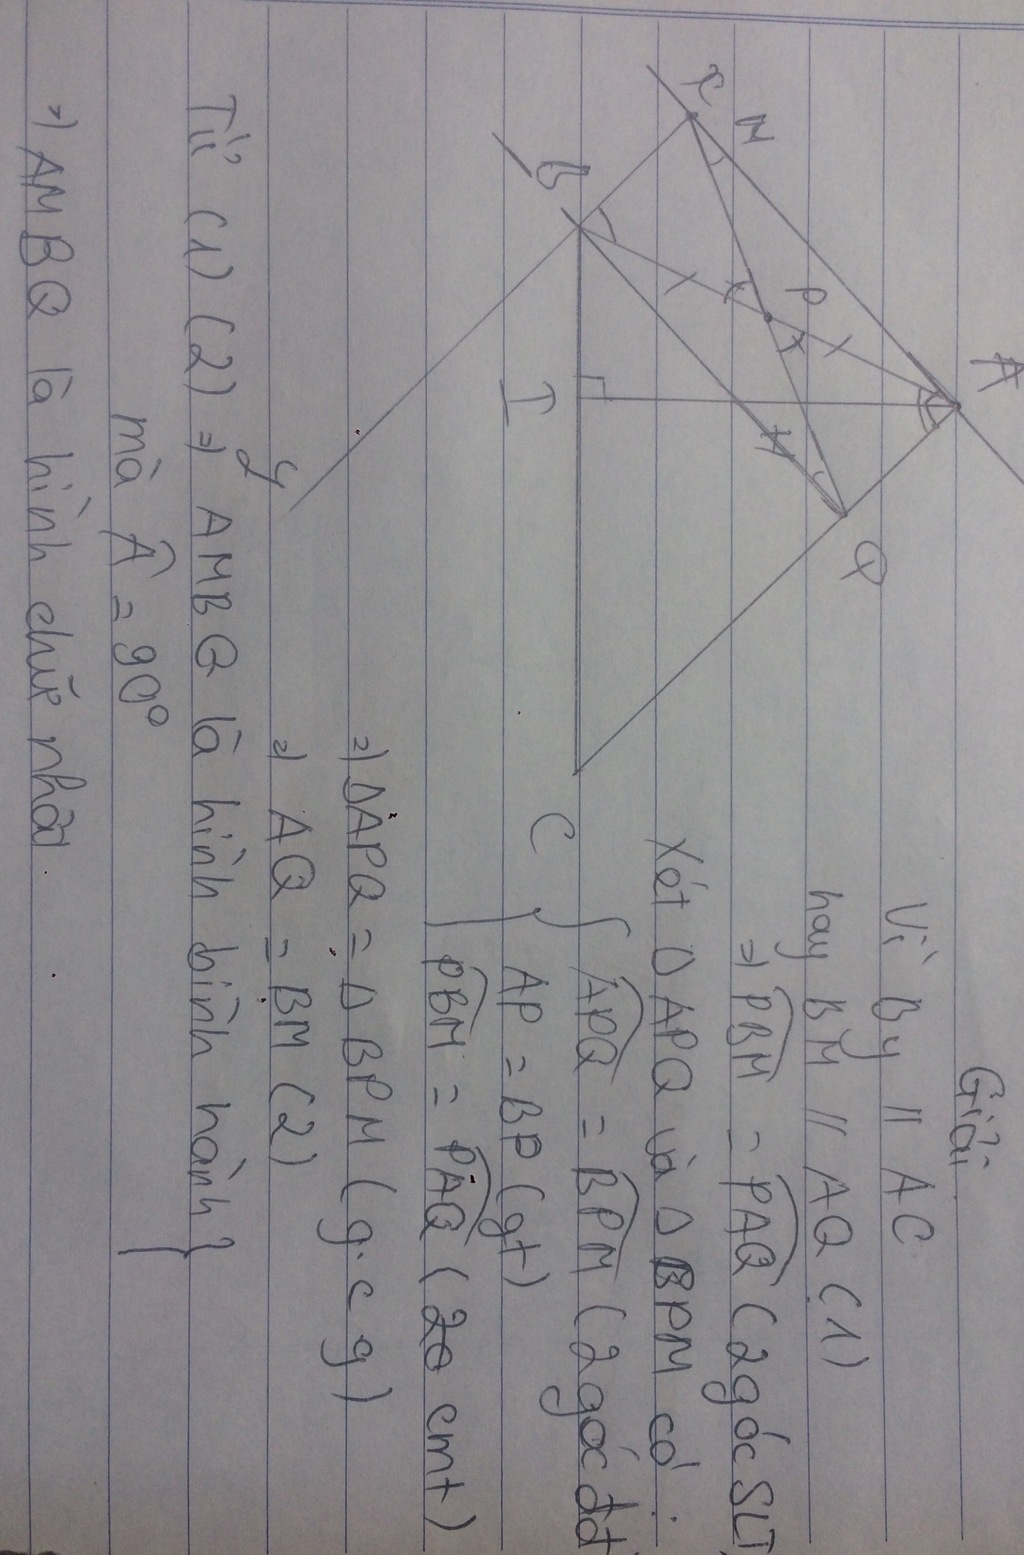 Giải
A
x
M
P
Q
B
H
I
C
y
Vì By // AC
hay BM // AQ (1)
=> PBM = PAQ (2 góc SLT)
Xét Δ APQ và Δ BPM có :
APQ = BPM (2 góc đđ
AP = BP (gt)
PBM = PAQ ( cmt)
=> ΔAPQ = Δ BPM ( g.c g)
=> AQ = BM (2)
Từ (1) (2) => AMBQ là hình bình hành }
mà Â = 90°
=> AMBQ là hình chữ nhật.